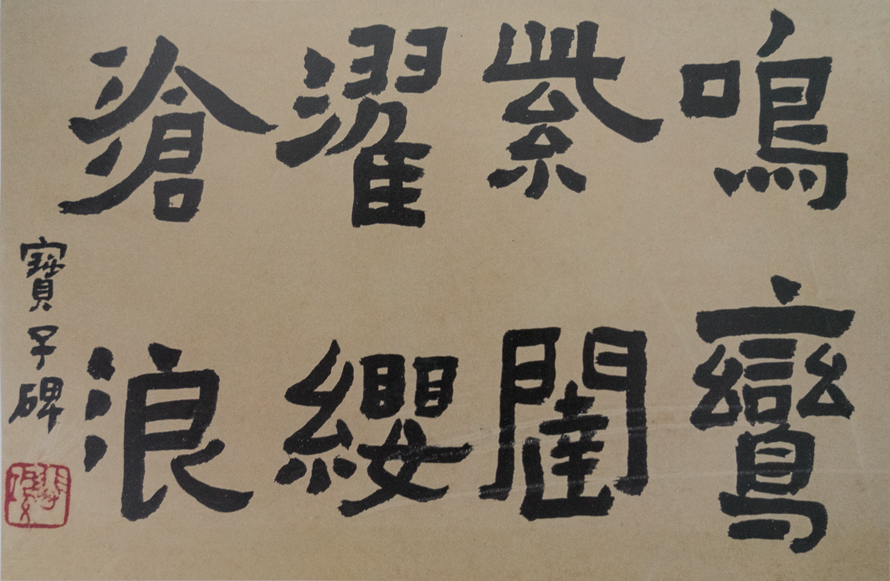 鳴鸞
紫闥
濯纓
滄浪
寶子碑